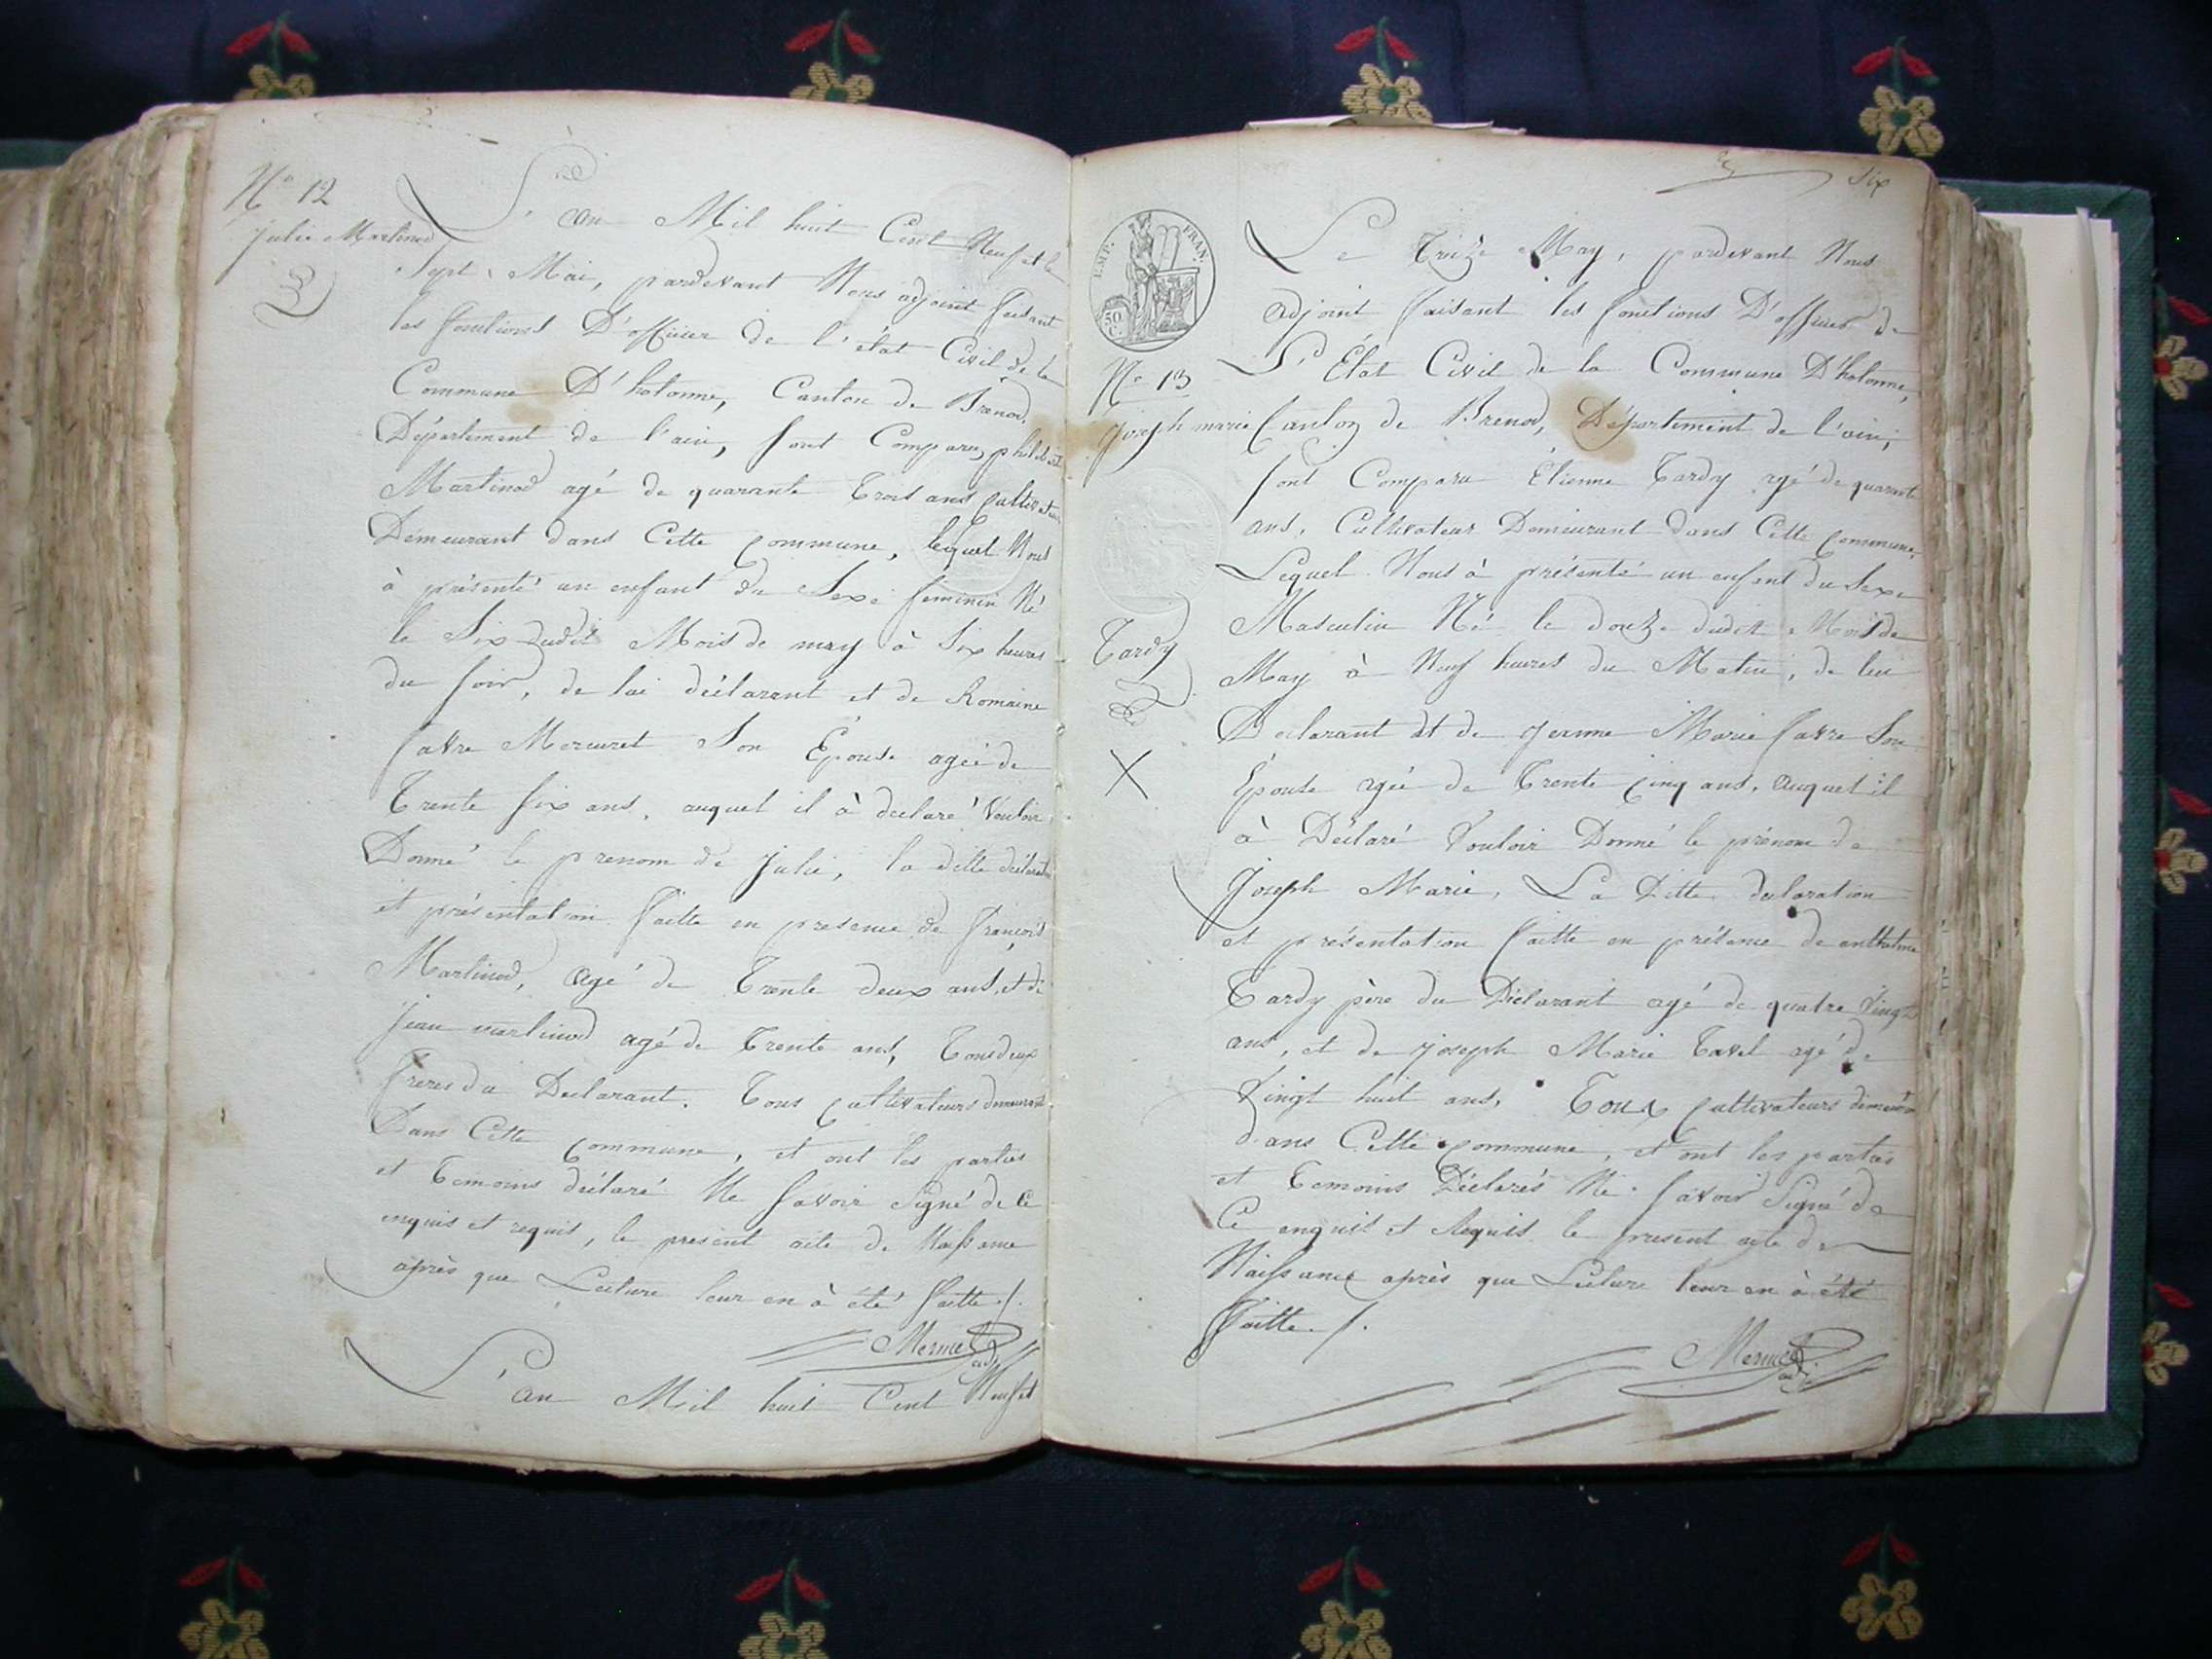 N° 12
Julie Martinod
L'an Mil huit Cent Neuf et le
Sept Mai, pardevant Nous adjoint faisant
les fonctions D'officier de l'état Civil de la
Commune D'hotonne, Canton de Brenod,
Département de l'ain, sont Comparu philibert
Martinod agé de quarante trois ans Cultivateur
Demeurant dans Cette Commune, lequel Nous
à présenté un enfant du Sexe feminin Né
le Six dudit Mois de may à Six heures
du soir, de lui déclarant et de Romaine
favre Mercuret Son Épouse agée de
Trente six ans, auquel il à déclaré Vouloir
Donné le prenom de Julie, la ditte déclaration
et présentation faitte en presence de françois
Martinod, agé de Trente deux ans, et de
Jean martinod agé de Trente ans, Tous deux
freres du Declarant. Tous Cultivateurs demeurant
Dans Cette Commune, et ont les parties
et Temoins déclaré Ne Savoir Signé de Ce
enquis et requis, le présent acte de Naissance
après que Lecture leur en à été faitte /.
Mermet adj.
L'an Mil huit Cent Neuf et
six
EMP. FRAN.
50 C.
Le Treize May, pardevant Nous
adjoint faisant les fonctions D'officier de
L'État Civil de la Commune D'hotonne,
N° 13
Joseph marie
Canton de Brenod, Département de l'ain,
sont Comparu Étienne Tardy agé de quarante
ans, Cultivateur Demeurant dans Cette Commune,
Lequel Nous à présenté un enfant du Sexe
Masculin Né le douze dudit Mois de
Tardy
May à Neuf heures du Matin, de lui
Declarant et de Jeanne Marie favre Son
X
Épouse agée de Trente Cinq ans, auquel il
à Déclaré Vouloir Donné le prénom de
Joseph Marie, La Ditte declaration
et présentation faitte en présence de anthelme
Tardy père du Déclarant agé de quatre Vingt
ans, et de Joseph Marie Tavel agé de
Vingt huit ans, Tous Cultivateurs demeurant
dans Cette Commune, et ont les parties
et Temoins Déclarés Ne Savoir Signé de
Ce enquis et Requis le present acte de
Naissance après que Lecture leur en à été
faitte /.
Mermet adj.